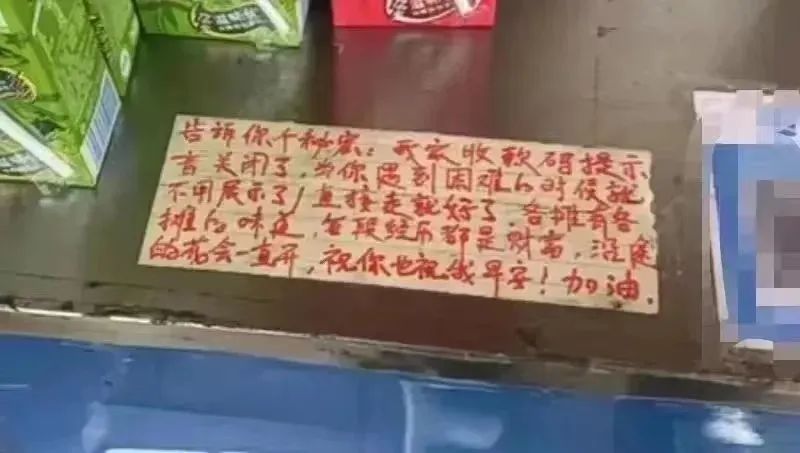 告诉你个秘密：我家收款码提示
音关闭了，当你遇到困难的时候就
不用展示了，直接走就好了，各摊有各
摊的味道，每段经历都是财富，沿途
的花会一直开，祝你也祝我早安！加油.